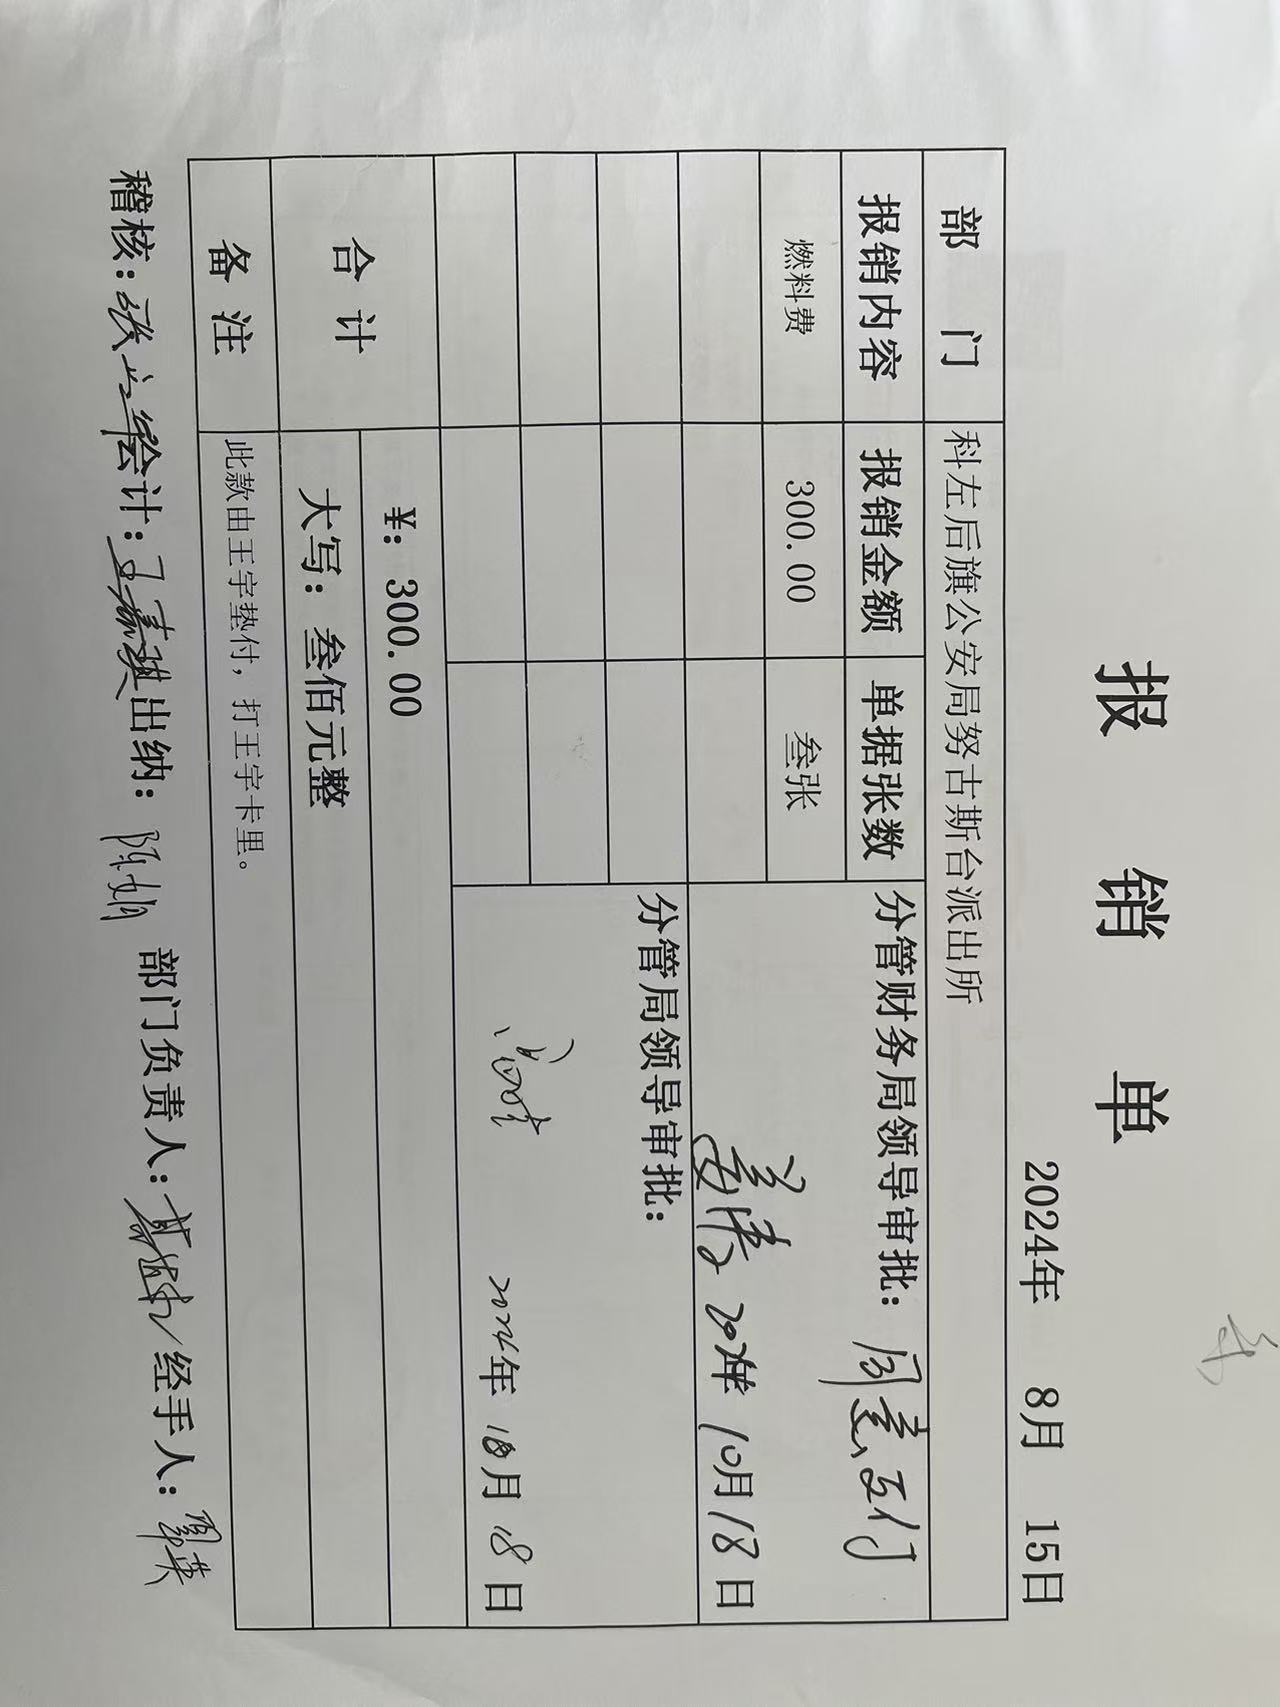 报 销 单
2024年 8月 15日
部 门 科左后旗公安局努古斯台派出所
报销内容 报销金额 单据张数 分管财务局领导审批：
燃料费 300.00 叁张
2024年 10月 18日
分管局领导审批：
2024年 10月 18日
合 计 ¥：300.00
大写：叁佰元整
备 注 此款由王宇垫付，打王宇卡里。
稽核： 会计： 出纳： 部门负责人： 经手人：